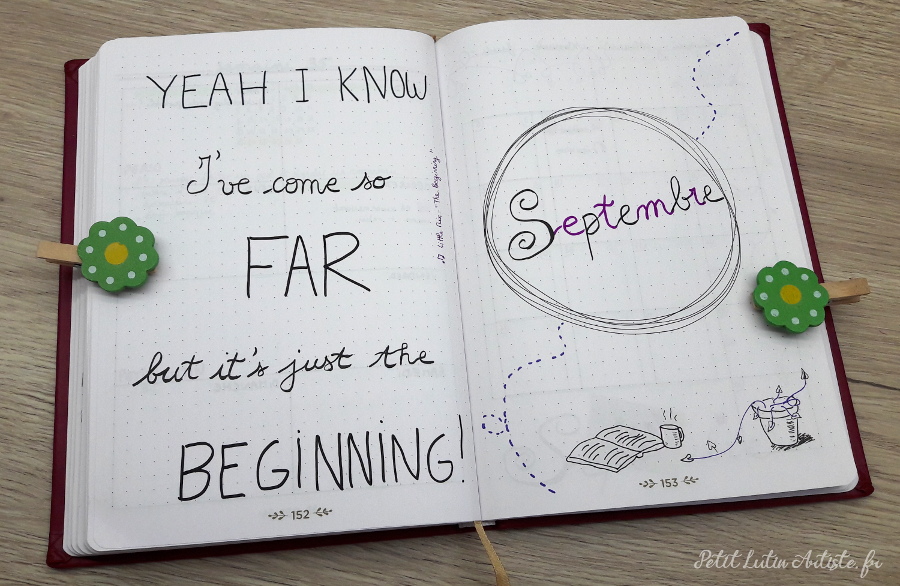 YEAH I KNOW
I've come so
FAR
but it's just the
BEGINNING!
152
Septembre
153
Petit Lutin Artiste.fr